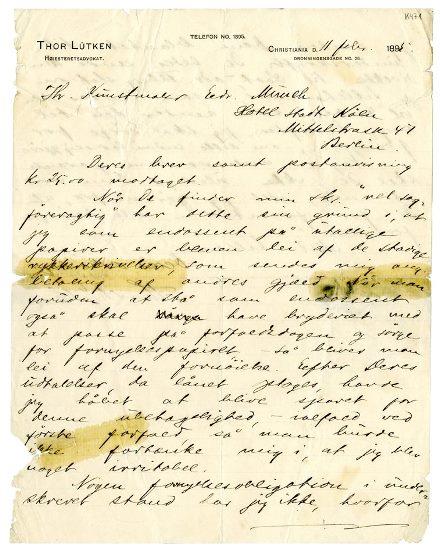 K471
TELEFON NO. 1895.
THOR LÜTKEN
HØIESTERETSADVOKAT.
CHRISTIANIA D. 11 febr. 189
DRONNINGENSGADE NO. 26.
Hr. Kunstmaler Edv. Munch
Hotel Stadt Köln
Mittelstrasse 47
Berlin.
Deres brev samt postanvisning
kr 25.00 modtaget.
Når De finder min skr. "vel sag-
føreragtig" har dette sin grund i, at
jeg som endossent på utallige
papirer er bleven lei af de stadige
rykkerskrivelser, som sendes mig om
betaling af andres gjæld. Når man
foruden at stå som endossent
også skal have bryderiet med
at passe på forfaldsdagen og sørge
for fornyelsespapiret så bliver man
lei af den fornøielse. Efter Deres
udtalelser, da lånet toges, havde
jeg håbet at blive sparet for
denne ubehagelighed, - ialfald ved
første forfald så man burde
ikke fortænke mig i, at jeg blev
noget irritabel.
Nogen fornyelsesobligation i under-
skrevet stand har jeg ikke, hvorfor